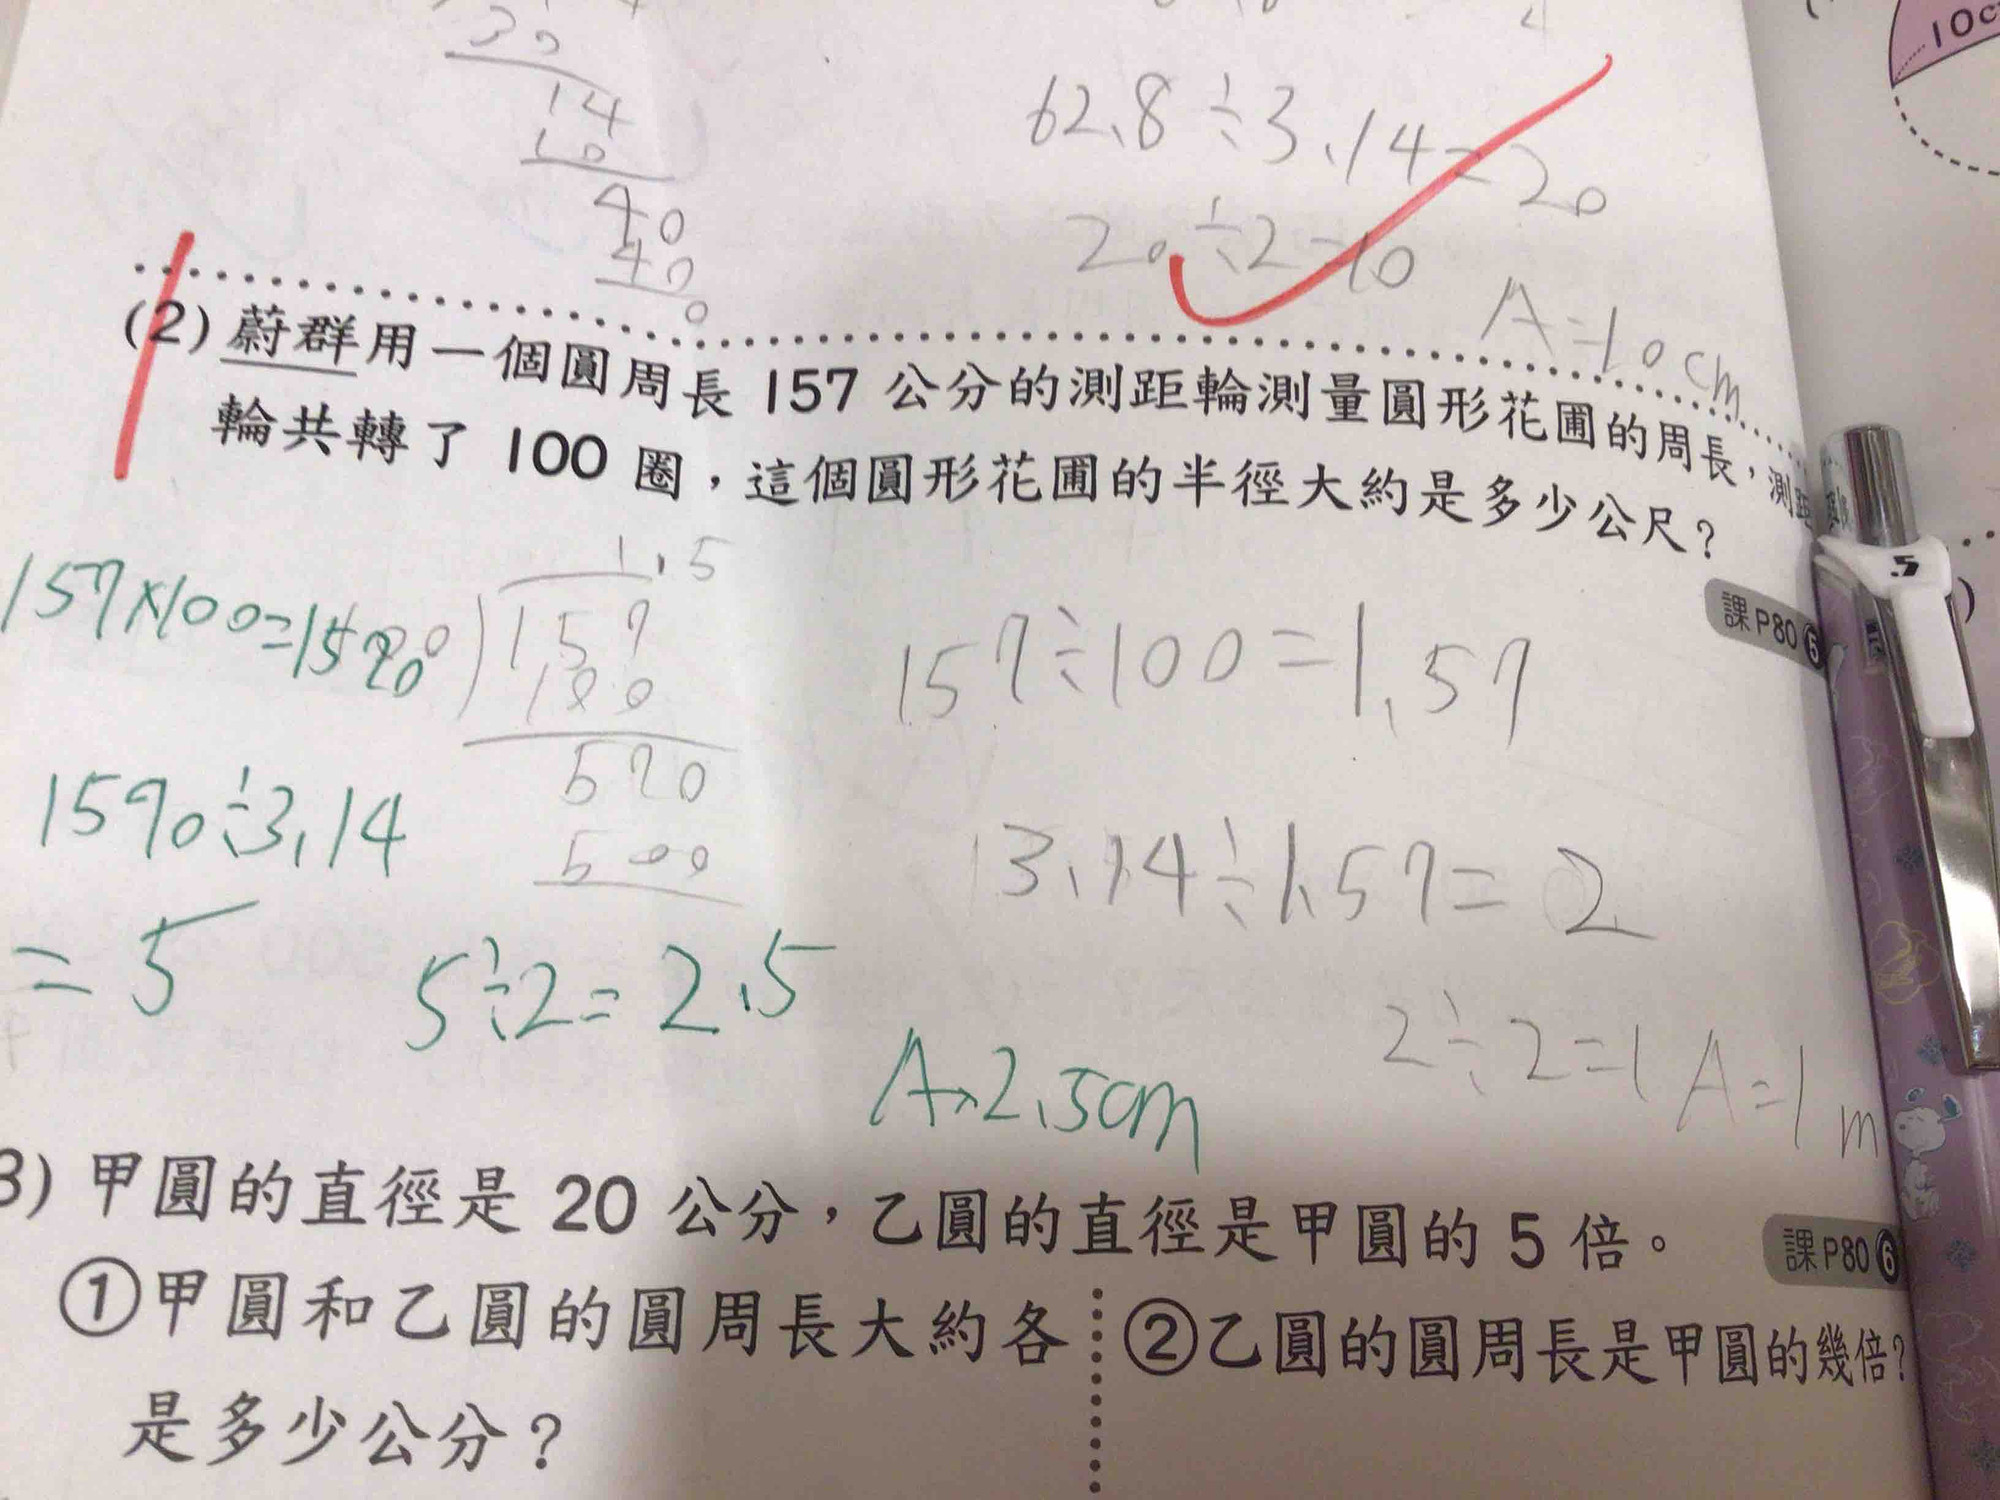 30
14
10
40
40
0
62.8÷3.14=20
20÷2=10
A=10cm
10c
(2) 蔚群用一個圓周長 157 公分的測距輪測量圓形花圃的周長，測距
輪共轉了 100 圈，這個圓形花圃的半徑大約是多少公尺？
課P80 5
157×100=15700
1.5
157
100
570
500
157÷100=1.57
1570÷3.14
=5
5÷2=2.5
A 2.5cm
3.14÷1.57=2
2÷2=1 A=1m
3) 甲圓的直徑是 20 公分，乙圓的直徑是甲圓的 5 倍。
課P80 6
①甲圓和乙圓的圓周長大約各
是多少公分？
②乙圓的圓周長是甲圓的幾倍？
.5